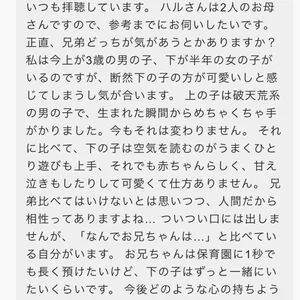 いつも拝聴しています。 ハルさんは2人のお母
さんですので、参考までにお伺いしたいです。
正直、兄弟どっちが気があうとかありますか？
私は今上が3歳の男の子、下が半年の女の子が
いるのですが、断然下の子の方が可愛いしと感
じてしまうし気が合います。 上の子は破天荒系
の男の子で、生まれた瞬間からめちゃくちゃ手
がかりました。今もそれは変わりません。 それ
に比べて、下の子は空気を読むのがうまくひと
り遊びも上手、それでも赤ちゃんらしく、甘え
泣きもしたりして可愛くて仕方ありません。 兄
弟比べてはいけないとは思いつつ、人間だから
相性ってありますよね… ついつい口には出しま
せんが、「なんでお兄ちゃんは…」と比べてい
る自分がいます。 お兄ちゃんは保育園に1秒で
も長く預けたいけど、下の子はずっと一緒にい
たいくらいです。 今後どのような心の持ちよう